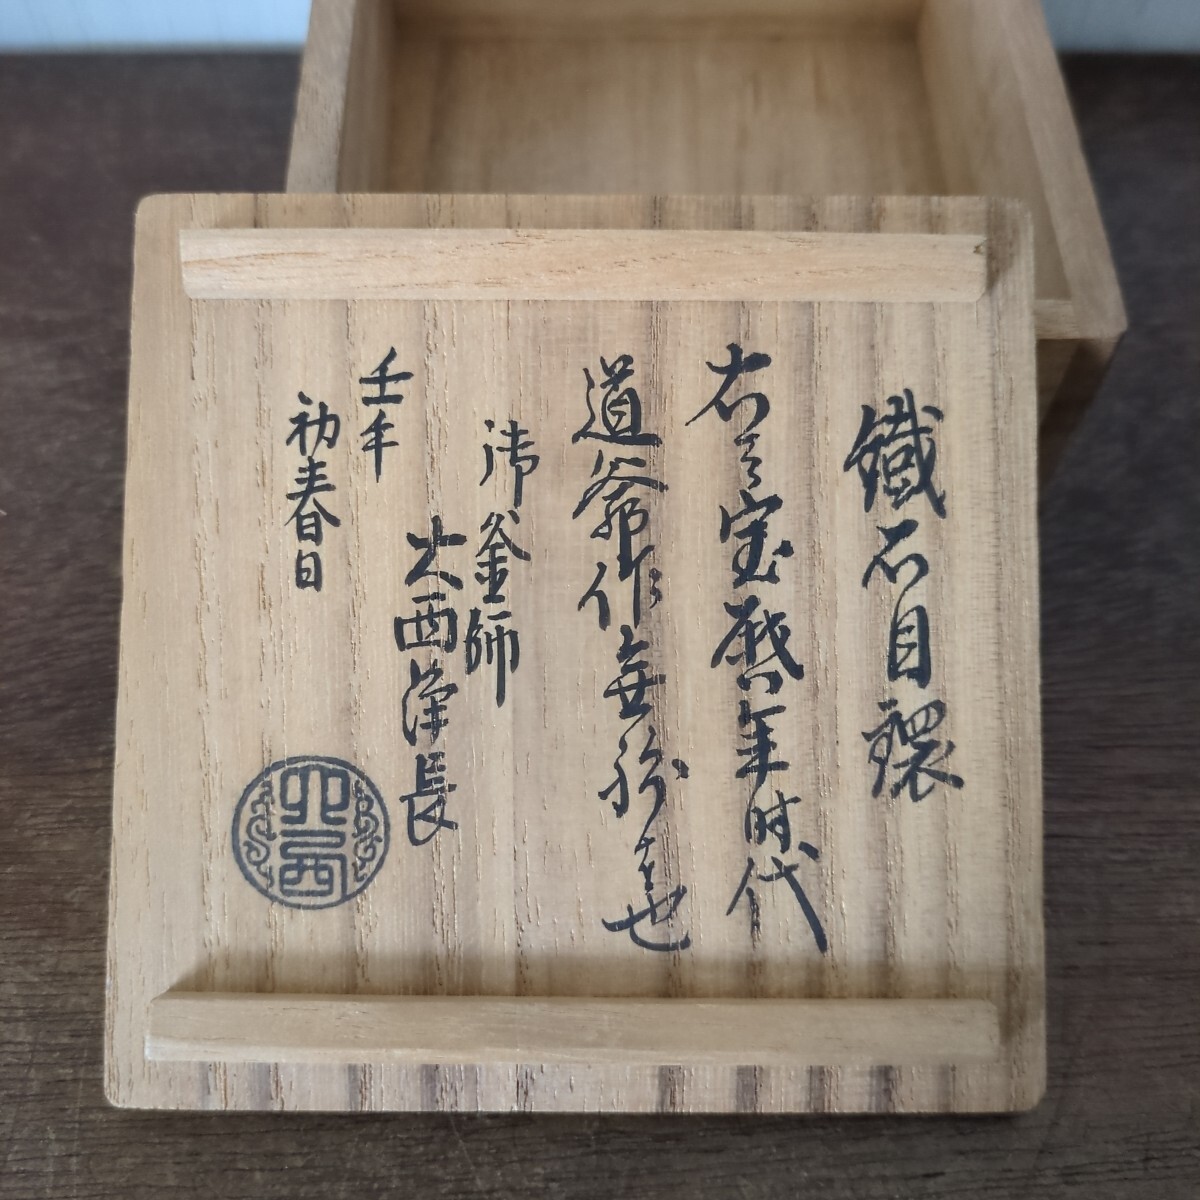 鐵石目鐶
右者宝暦年時代
道爺作無紛者也
御釜師
大西浄長
壬午
初春日
大西